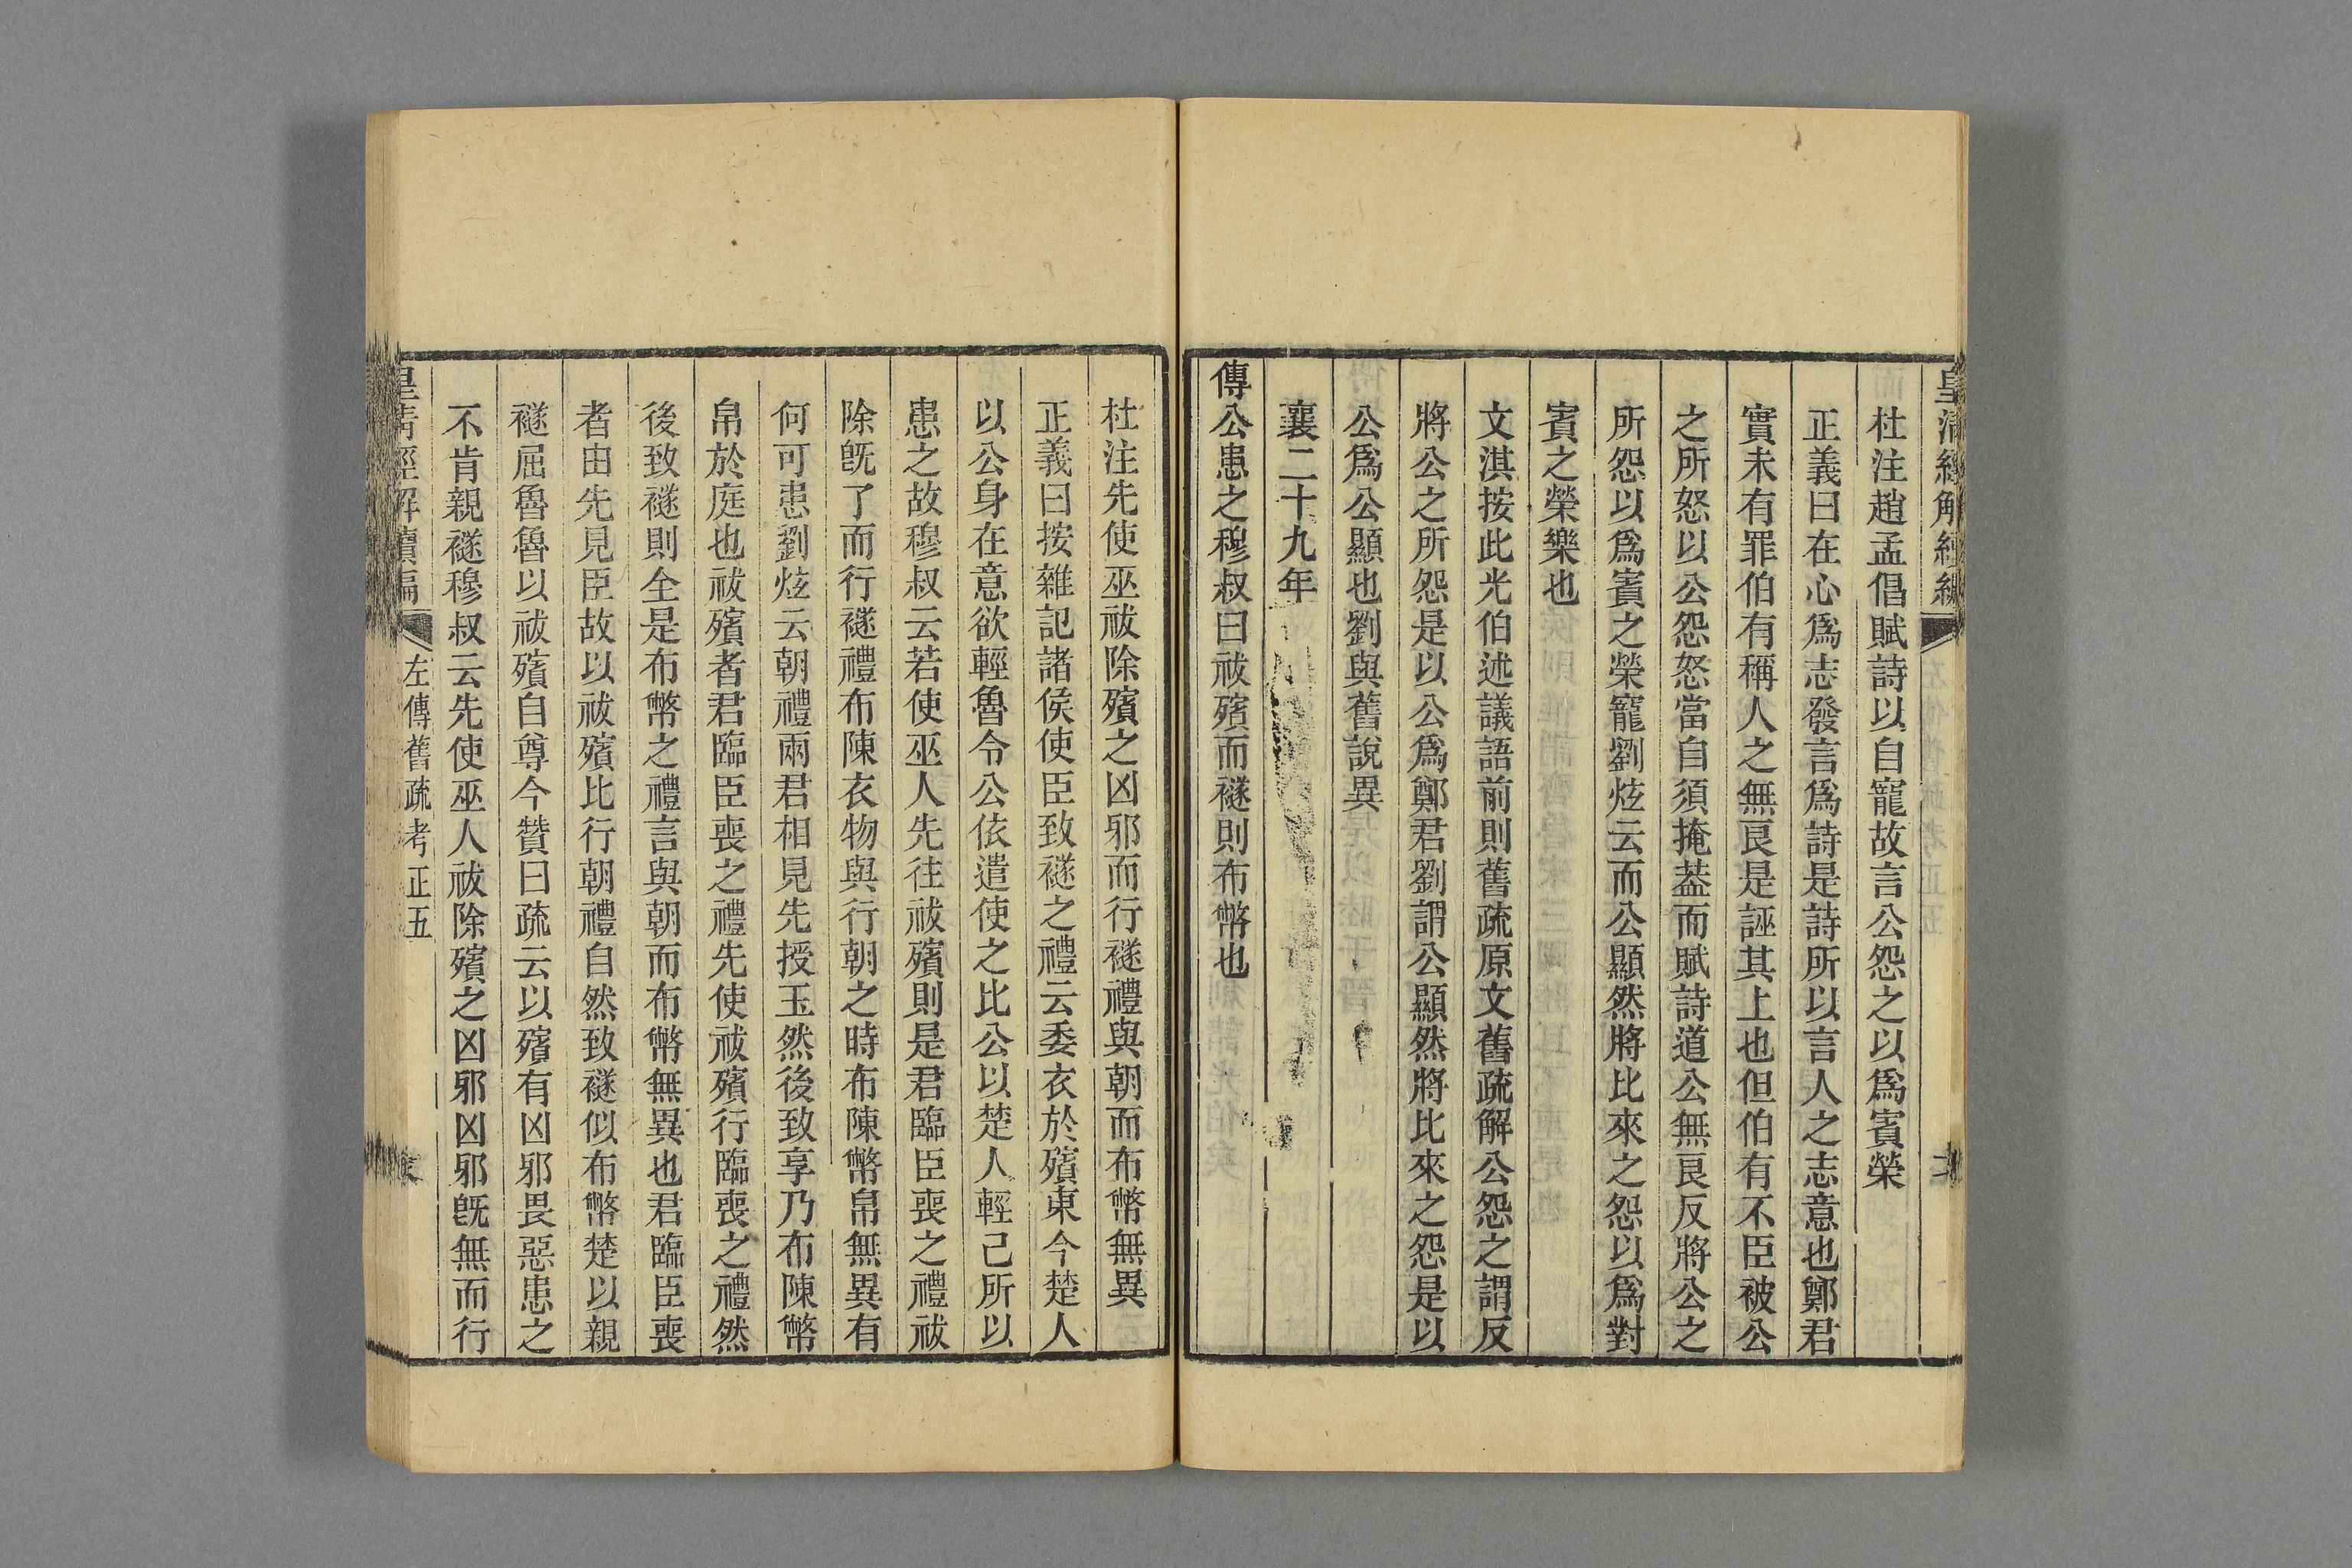 皇清經解續編
杜注趙孟倡賦詩以自寵故言公怨之以爲賓榮
正義曰在心爲志發言爲詩是詩所以言人之志意也鄭君
實未有罪伯有稱人之無良是誣其上也但伯有不臣被公
之所怒以公怨怒當自須掩葢而賦詩道公無良反將公之
所怨以爲賓之榮寵劉炫云而公顯然將比來之怨以爲對
賓之榮樂也
文淇按此光伯述議語前則舊疏原文舊疏解公怨之謂反
將公之所怨是以公爲鄭君劉謂公顯然將比來之怨是以
公爲公顯也劉與舊說異
襄二十九年
傳公患之穆叔曰祓殯而襚則布幣也
杜注先使巫祓除殯之凶邪而行襚禮與朝而布幣無異
正義曰按雜記諸侯使臣致襚之禮云委衣於殯東今楚人
以公身在意欲輕魯令公依遣使之比公以楚人輕己所以
患之故穆叔云若使巫人先往祓殯則是君臨臣喪之禮祓
除旣了而行襚禮布陳衣物與行朝之時布陳幣帛無異有
何可患劉炫云朝禮兩君相見先授玉然後致享乃布陳幣
帛於庭也祓殯者君臨臣喪之禮先使祓殯行臨喪之禮然
後致襚則全是布幣之禮言與朝而布幣無異也君臨臣喪
者由先見臣故以祓殯比行朝禮自然致襚似布幣楚以親
襚屈魯魯以祓殯自尊今贊曰疏云以殯有凶邪畏惡患之
不肯親襚穆叔云先使巫人祓除殯之凶邪凶邪旣無而行
皇清經解續編 左傳舊疏考正五